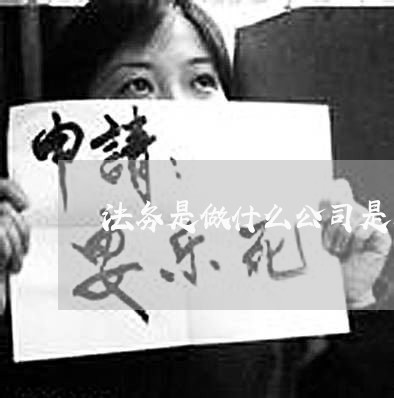 申請：
法务是做什么公司是
安乐死